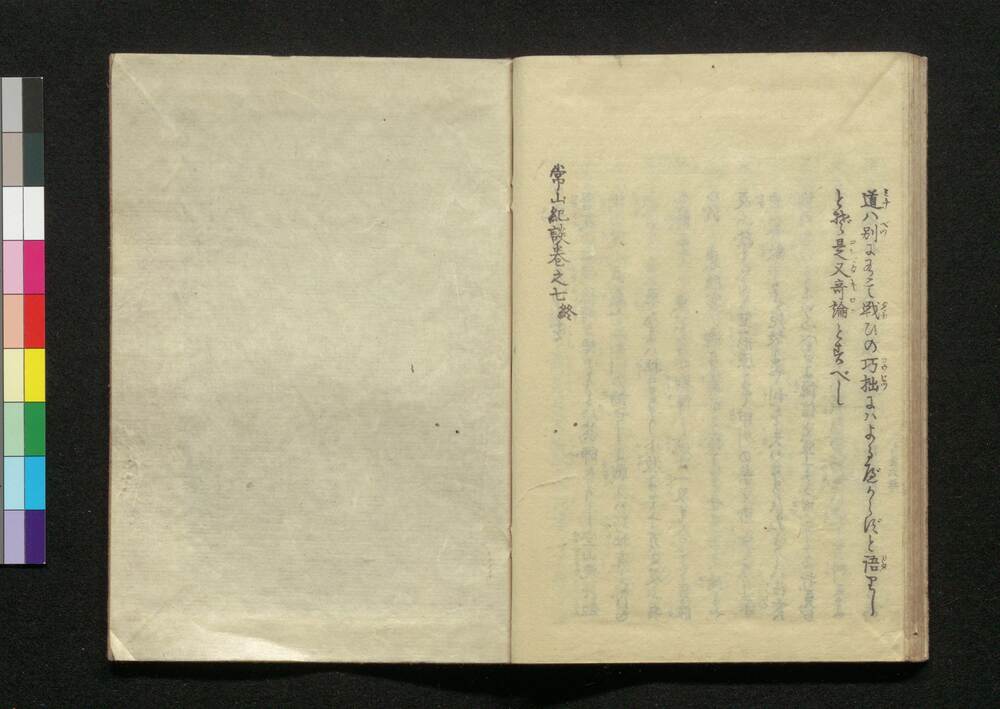 道ハ別にありて戦ひの巧拙にハよるべからずと語りし
とぞ是又奇論とすべし
常山紀談巻之七終